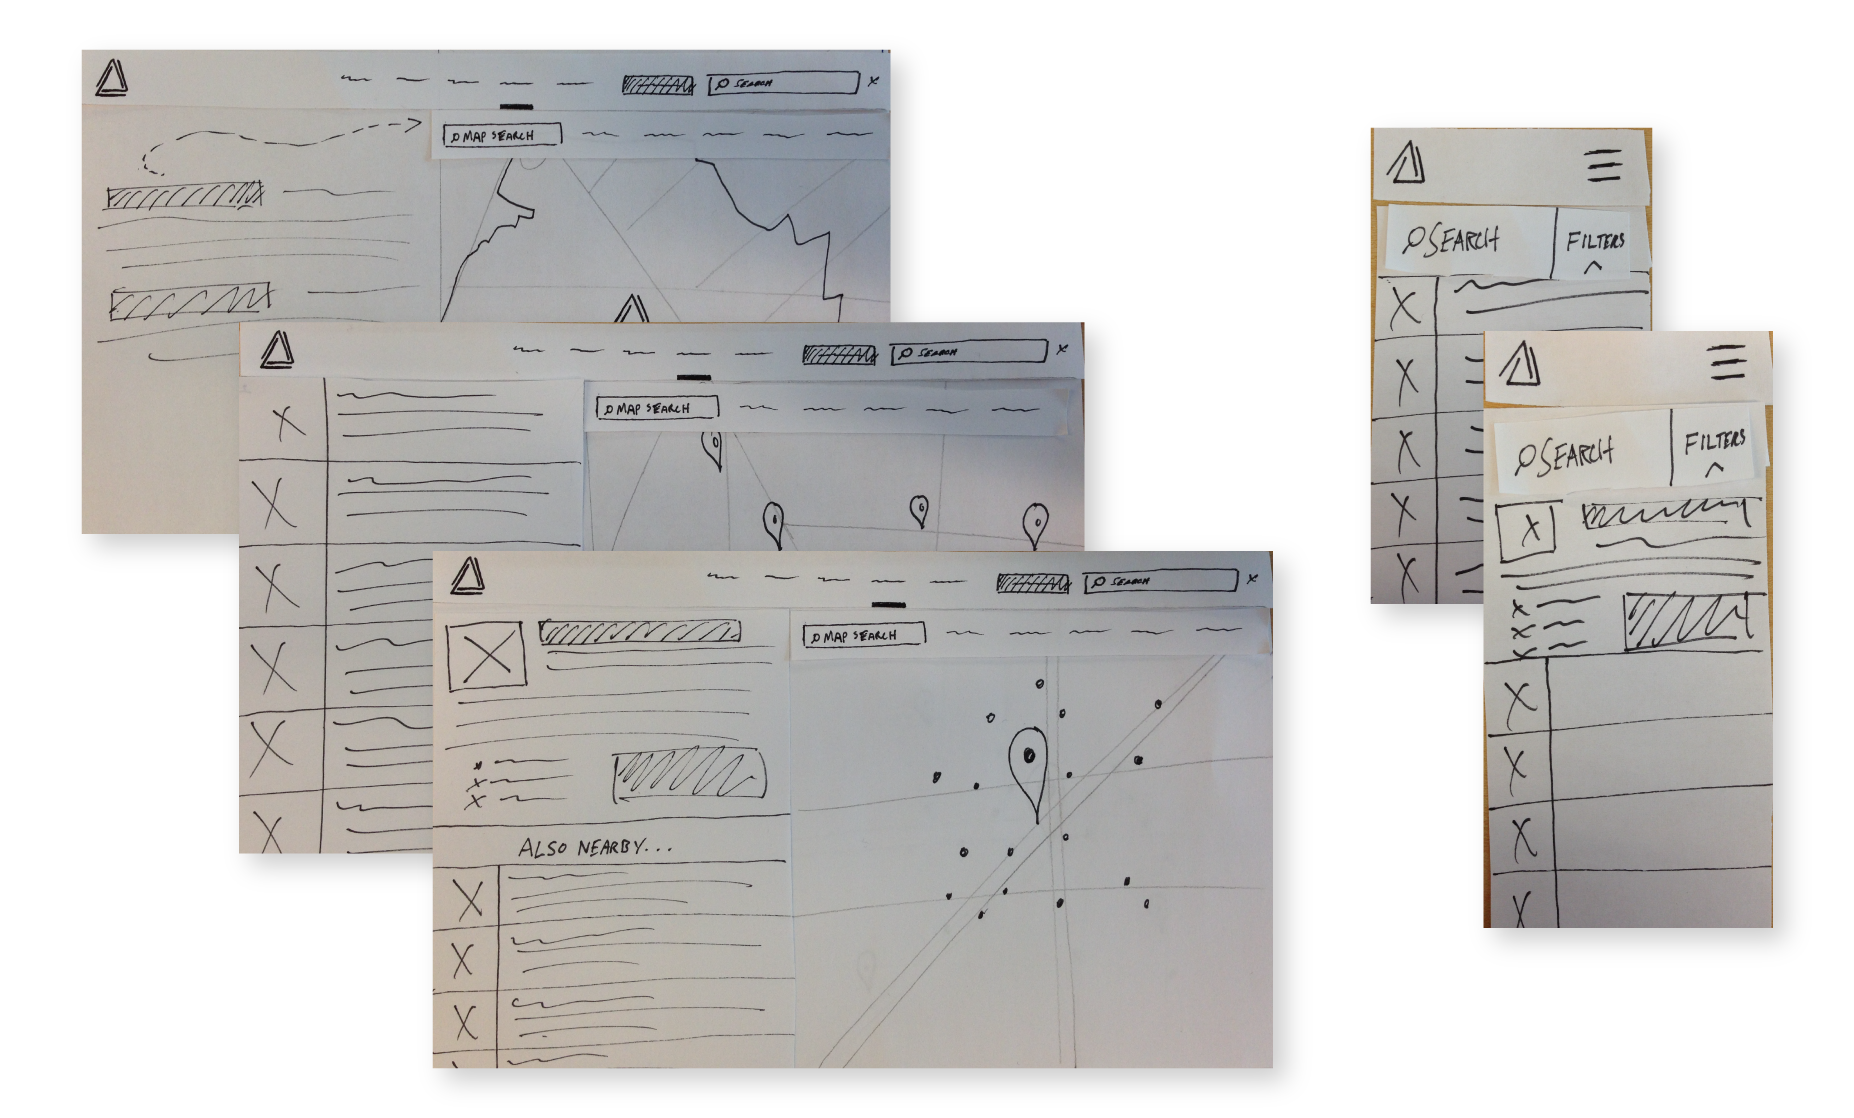 SEARCH
MAP SEARCH
SEARCH
MAP SEARCH
SEARCH
MAP SEARCH
ALSO NEARBY...
SEARCH
FILTERS
SEARCH
FILTERS